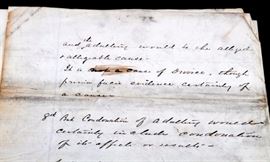 th
and adultery would be the alleged
alligable cause
It is not a cause of Divorce, though
prima facie evidence certainly of
a cause
8th But Condonation of Adultery would
certainly include condonation
of its effects or results